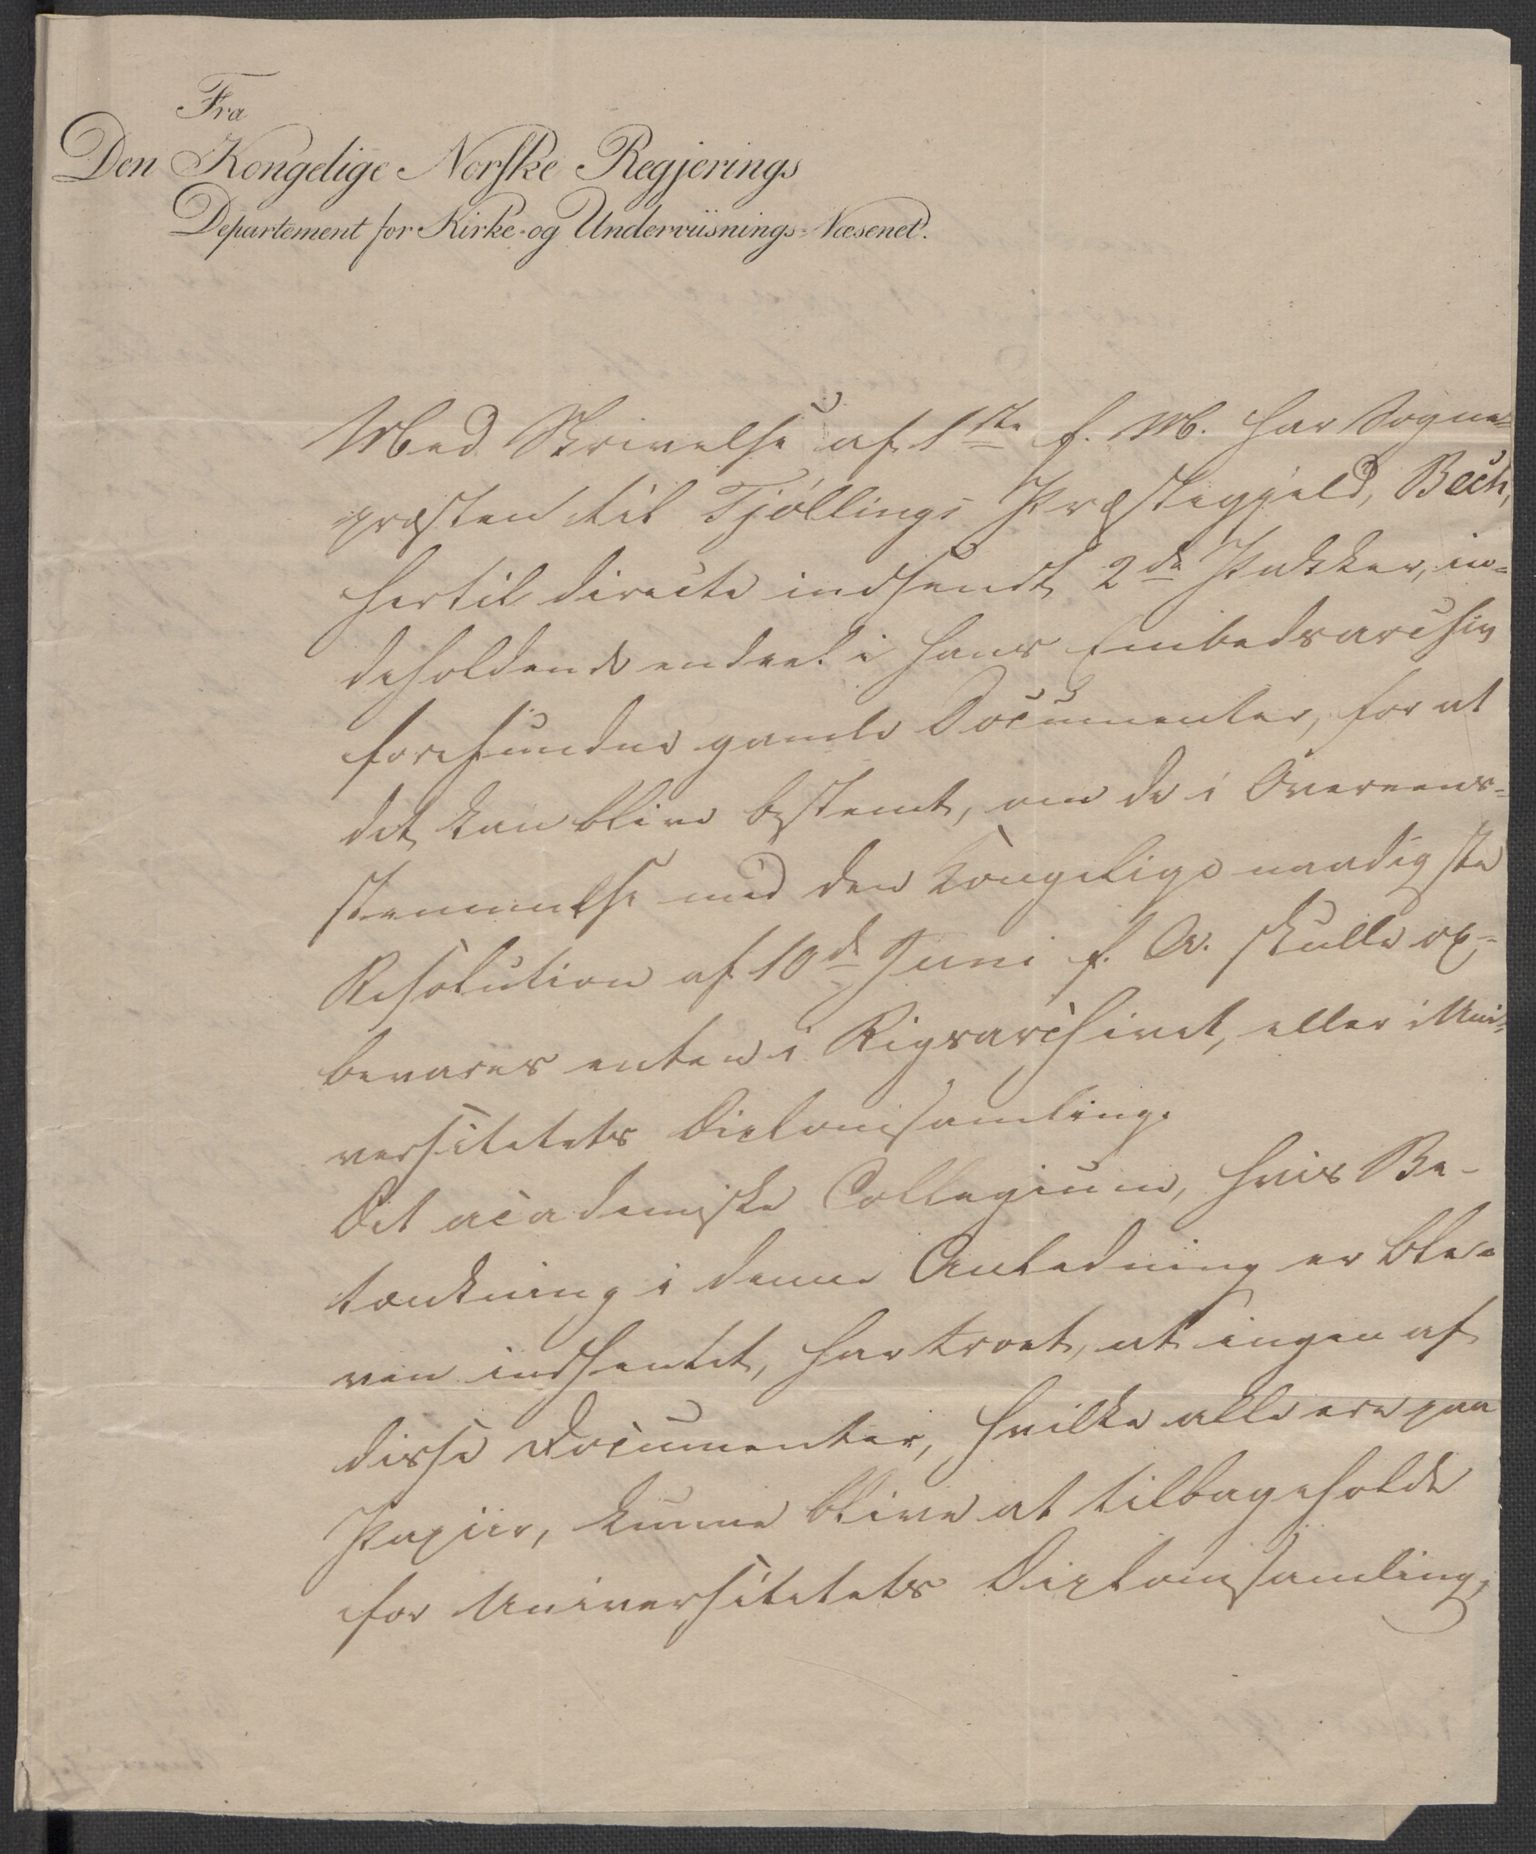 Fra
Den Kongelige Norske Regjerings
Departement for Kirke- og Underviisnings-Væsenet.
Med Skrivelse af 1ste f. M. har Sogne-
præsten til Tjøllings Præstegjeld, Bech,
hertil directe indsendt 2de Pakker, in-
deholdende endeel i hans Embedsarchiv
forefundne gamle Documenter, for at
det kan blive bestemt, om de i Overeens-
stemmelse med den Kongelige naadigste
Resolution af 10de Juni f. A. skulle op-
bevares enten i Rigsarchivet, eller i Uni-
versitetets Diplomsamling.
Det academiske Collegium, hvis Be-
tænkning i denne Anledning er ble-
ven indhentet, har troet, at ingen af
disse Documenter, hvilke alle ere paa
Papiir, kunne blive at tilbageholde
for Universitetets Diplomsamling,